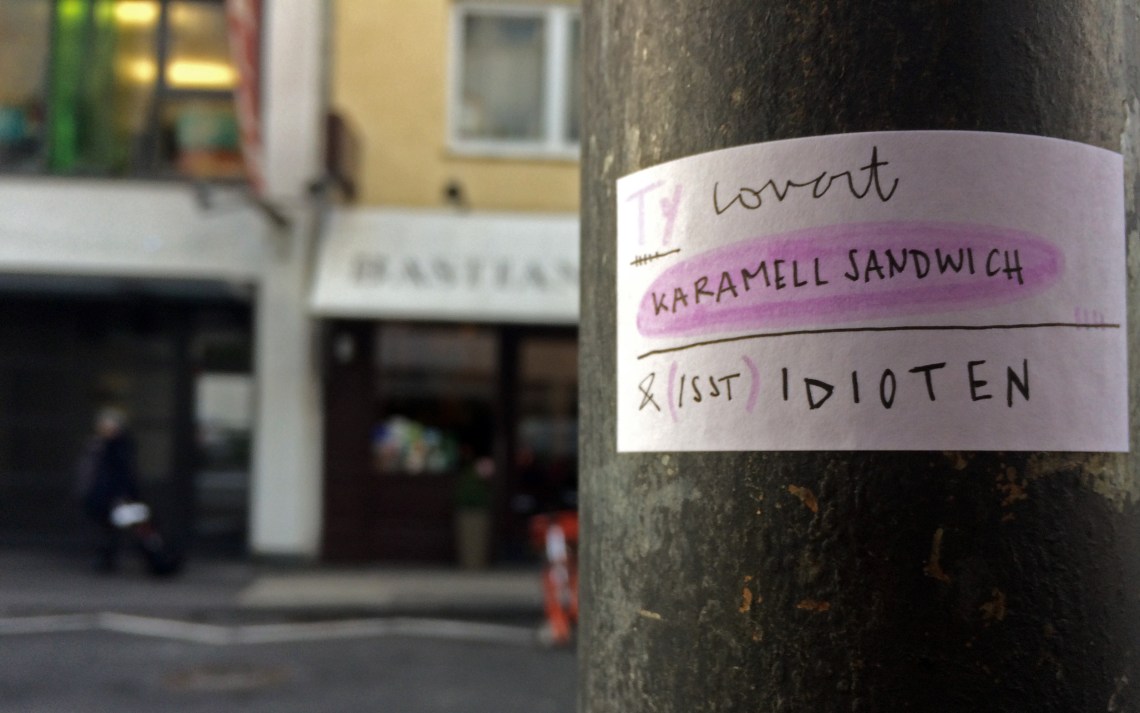 Ty lovort
KARAMELL SANDWICH
& (ISST) IDIOTEN